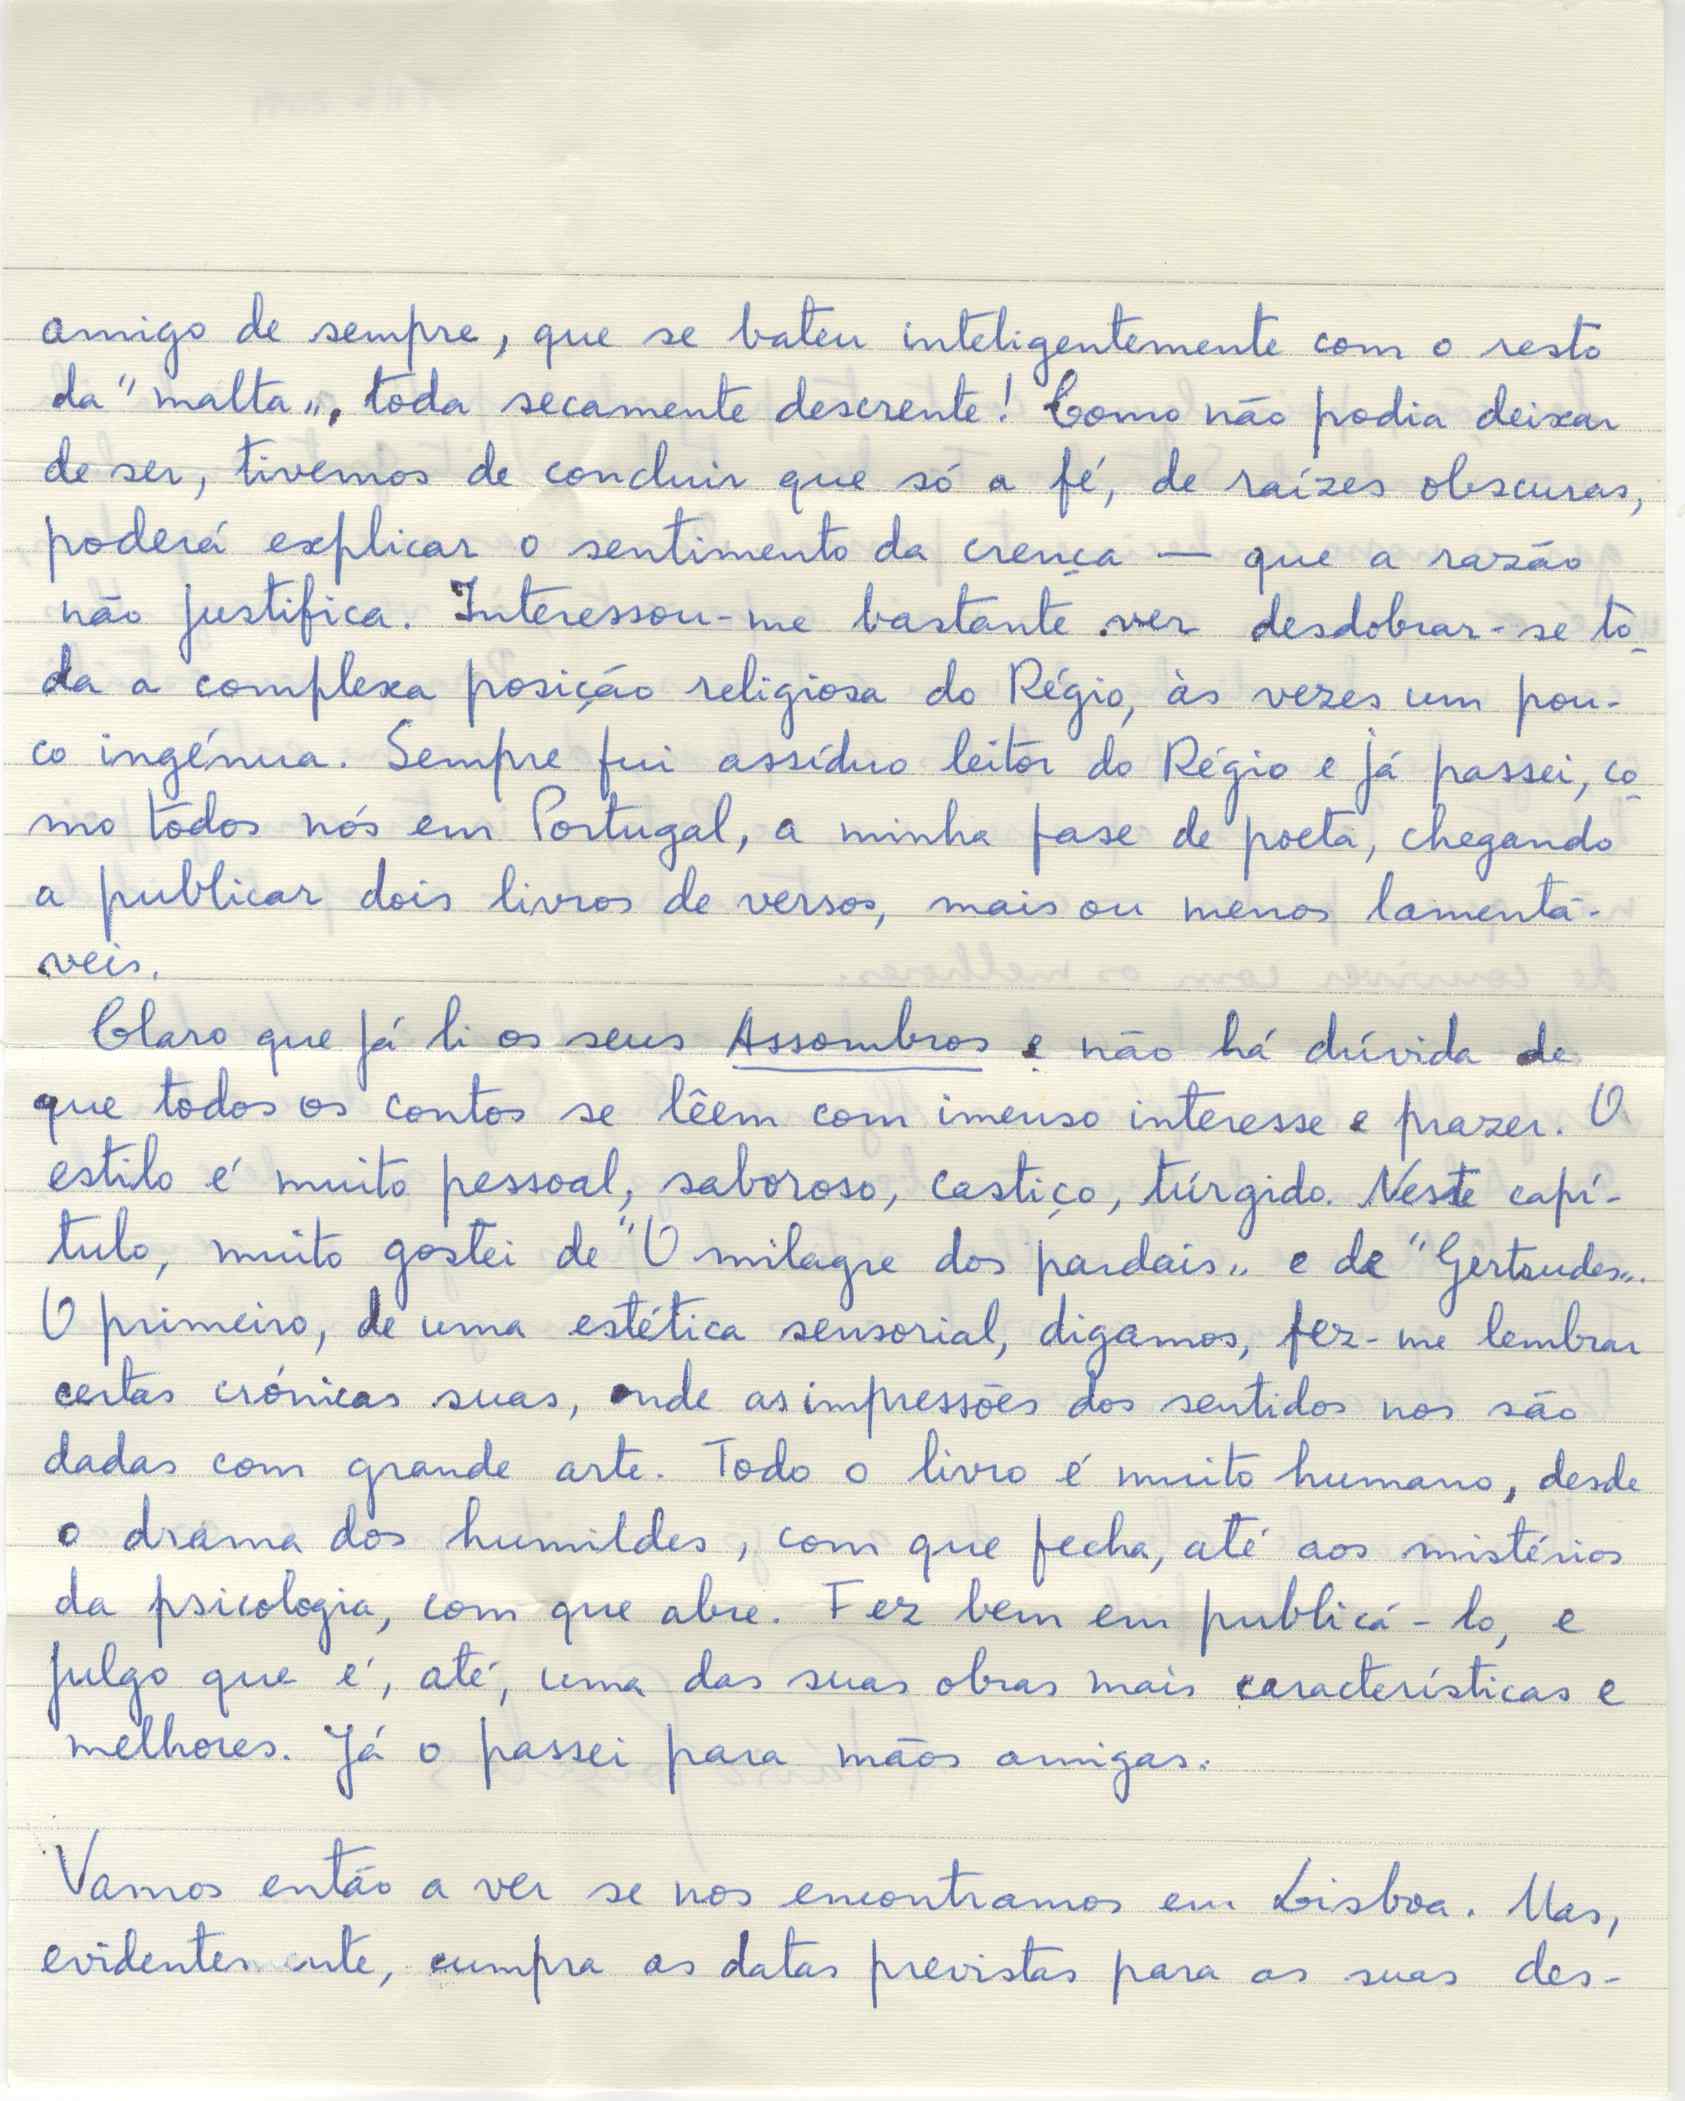 amigo de sempre, que se bateu inteligentemente com o resto
da "malta", toda secamente descrente! Como não podia deixar
de ser, tivemos de concluir que só a fé, de raízes obscuras,
poderá explicar o sentimento da crença — que a razão
não justifica. Interessou-me bastante ver desdobrar-se to-
da a complexa posição religiosa do Régio, às vezes um pou-
co ingénua. Sempre fui assíduo leitor do Régio e já passei, co-
mo todos nós em Portugal, a minha fase de poeta, chegando
a publicar dois livros de versos, mais ou menos lamentá-
veis.
Claro que já li os seus Assombros e não há dúvida de
que todos os contos se lêem com imenso interesse e prazer. O
estilo é muito pessoal, saboroso, castiço, túrgido. Neste capí-
tulo, muito gostei de "O milagre dos pardais" e de "Gertrudes".
O primeiro, de uma estética sensorial, digamos, fez-me lembrar
certas crónicas suas, onde as impressões dos sentidos nos são
dadas com grande arte. Todo o livro é muito humano, desde
o drama dos humildes, com que fecha, até aos mistérios
da psicologia, com que abre. Fez bem em publicá-lo, e
julgo que é, até, uma das suas obras mais características e
melhores. Já o passei para mãos amigas.
Vamos então a ver se nos encontramos em Lisboa. Mas,
evidentemente, cumpra as datas previstas para as suas des-